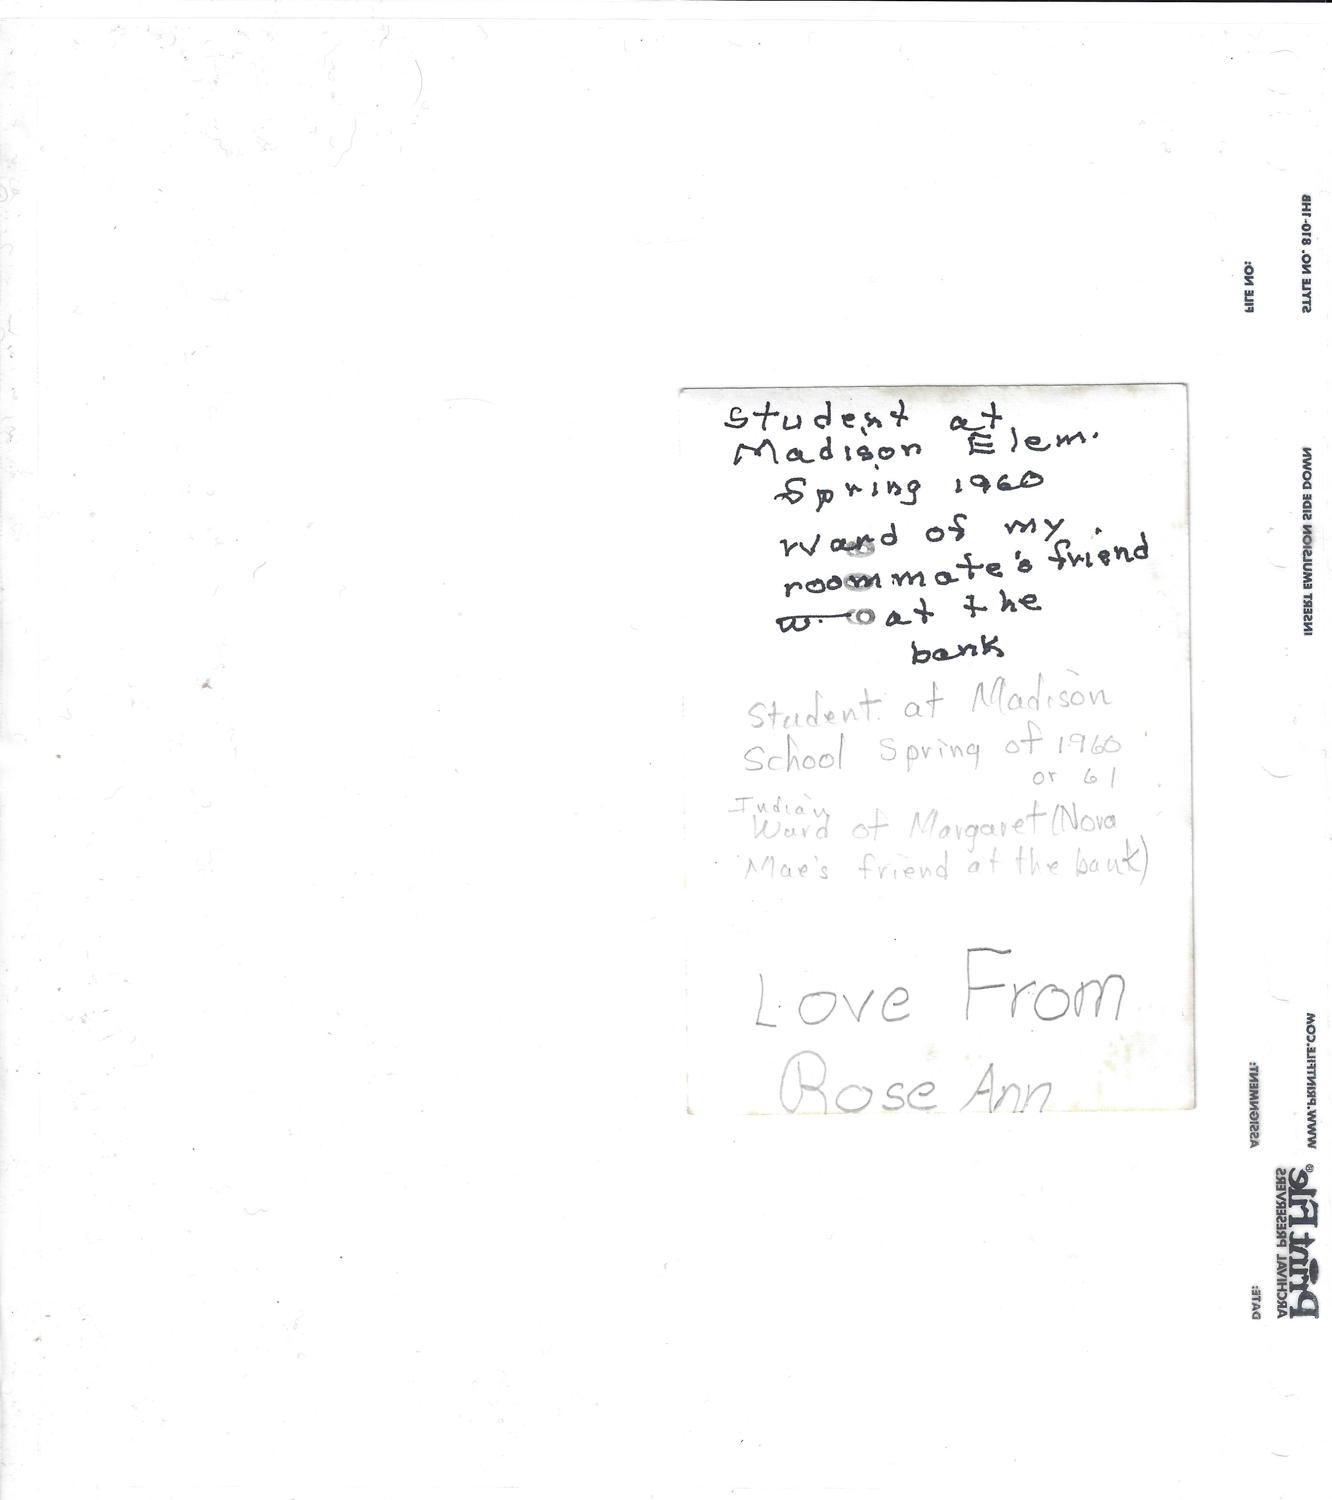 Student at
Madison Elem.
Spring 1960
Ward of my
roommate's friend
at the
bank
Student at Madison
School Spring of 1960
or 61
Indian
Ward of Margaret (Nova
Mae's friend at the bank)
Love From
Rose Ann
FILE NO:
STYLE NO. 810-1HB
INSERT EMULSION SIDE DOWN
ASSIGNMENT:
WWW.PRINTFILE.COM
DATE:
ARCHIVAL PRESERVERS
Print File®